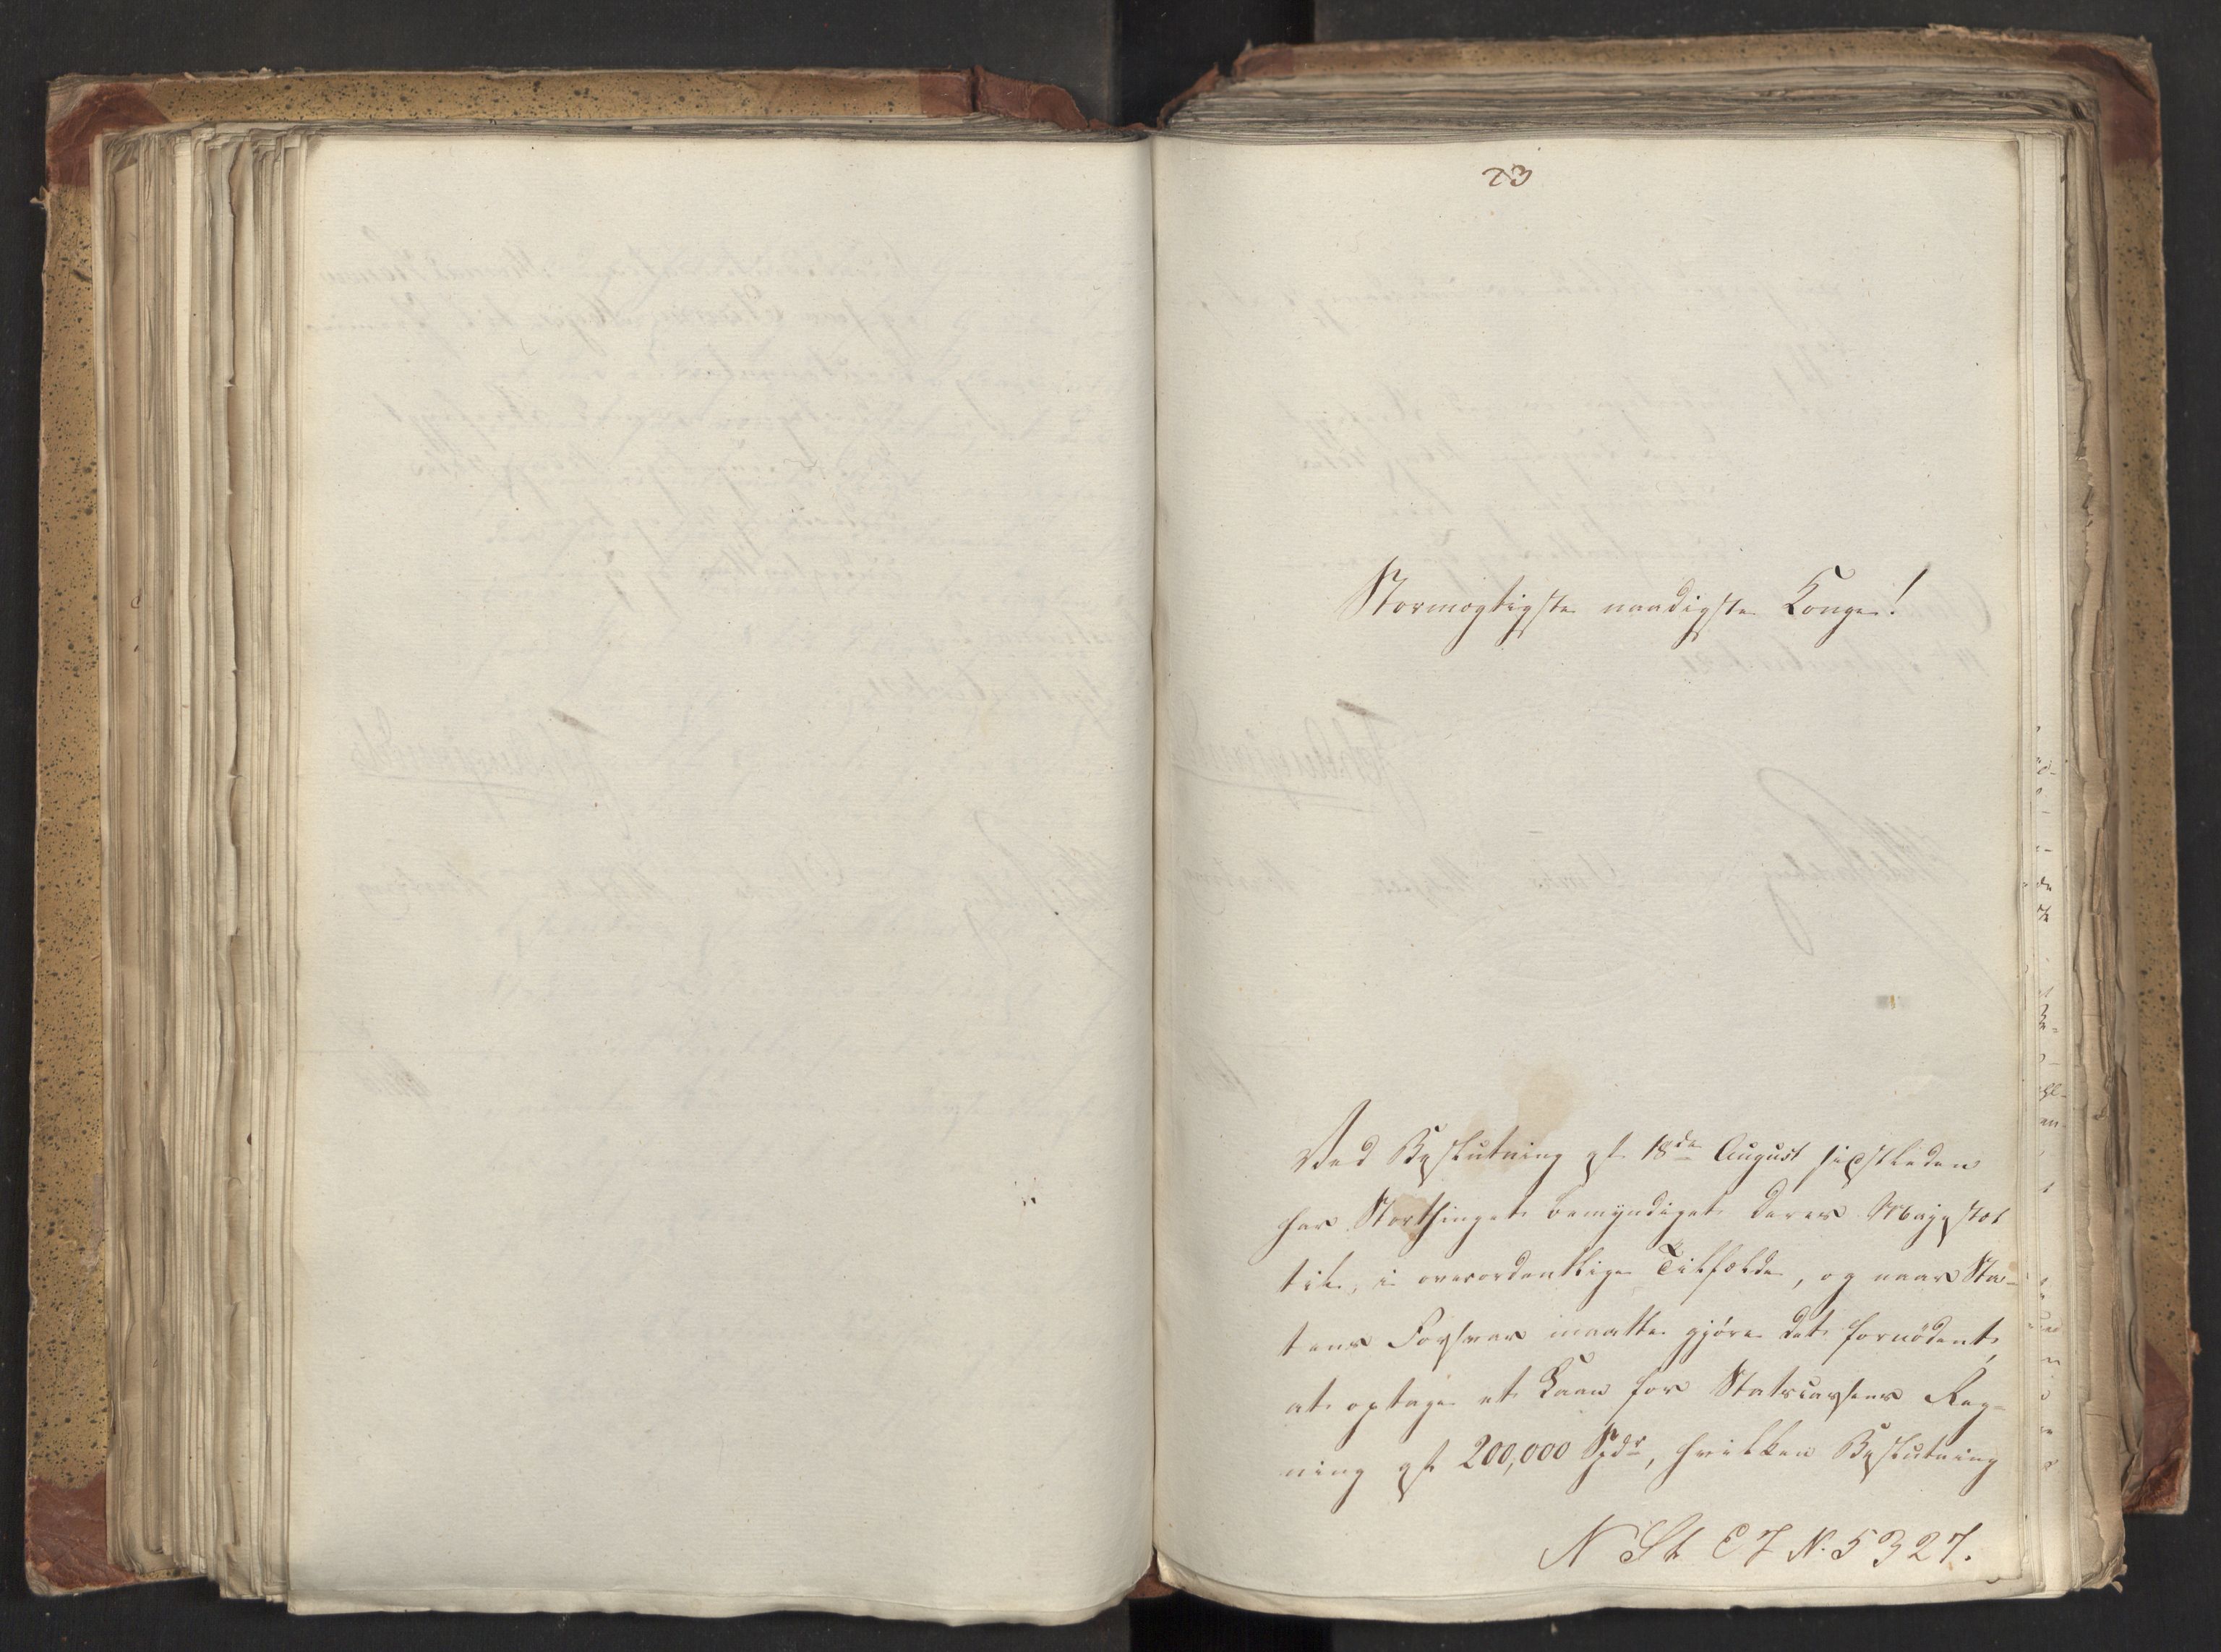 23
Stormægtigste naadigste Konge!
Ved Beslutning af 18de August sidstleden
har Storthinget bemyndiget Deres Majestæt
til, i overordentlige Tilfælde, og naar Sta-
tens Forsvar maatte gjøre det fornødent,
at optage et Laan for Statscassens Reg-
ning af 200,000 Spdr, hvilken Beslutning
N St C J N. 5327.